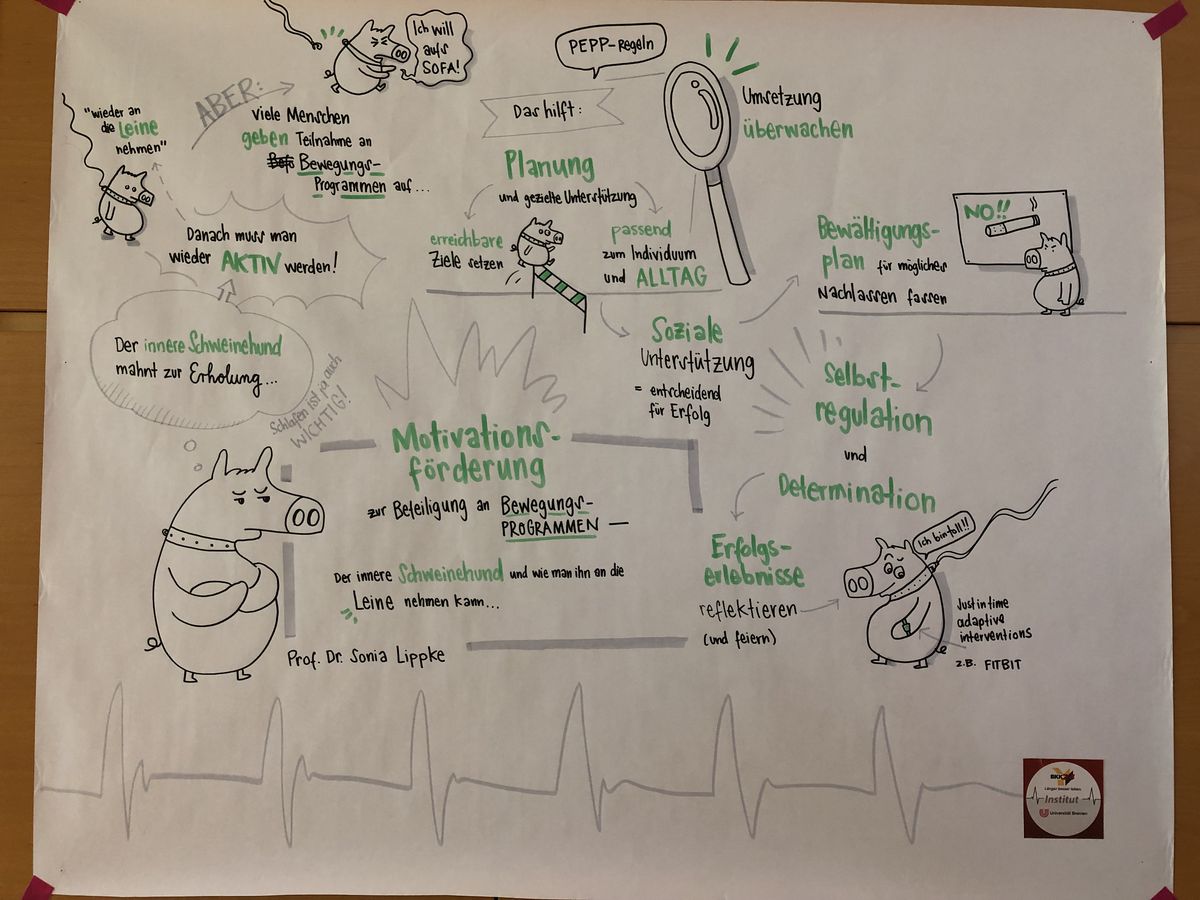 Motivations-
förderung
zur Beteiligung an Bewegungs-
PROGRAMMEN –
Der innere Schweinehund und wie man ihn an die
Leine nehmen kann...
Prof. Dr. Sonia Lippke
Schlafen ist ja auch
WICHTIG!
Der innere Schweinehund
mahnt zur Erholung...
Danach muss man
wieder AKTIV werden!
"wieder an
die Leine
nehmen"
ABER:
viele Menschen
geben Teilnahme an
Bewegungs-
Programmen auf...
Ich will
aufs
SOFA!
PEPP-Regeln
Das hilft:
Planung
und gezielte Unterstützung
erreichbare
Ziele setzen
passend
zum Individuum
und ALLTAG
Umsetzung
überwachen
Soziale
Unterstützung
= entscheidend
für Erfolg
Bewältigungs-
plan für mögliches
Nachlassen fassen
NO!!
Selbst-
regulation
und
Determination
Erfolgs-
erlebnisse
reflektieren
(und feiern)
Ich bin toll!!
Just in time
adaptive
interventions
z.B. FITBIT
BKK
Länger besser leben.
Institut
Universität Bremen